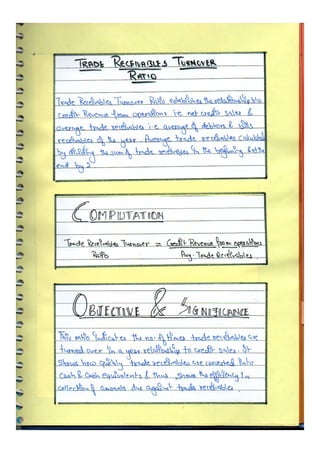 TRADE RECEIVABLES TURNOVER
RATIO
Trade Receivables Turnover Ratio establishes the relationship b/w
credit Revenue from operations i.e. net credit sales &
average trade receivables i.e average of debtors & bills
receivables of the year. Average trade receivables calculated
by dividing the sum of trade receivables in the beginning & at the
end by 2
COMPUTATION
Trade Receivables Turnover = Credit Revenue from operations
Ratio Avg. Trade Receivables.
OBJECTIVE & SIGNIFICANCE
This ratio indicates the no. of times trade receivables are
turned over in a year relationship to credit sales. It
shows how quickly trade receivables are converted into
cash & Cash equivalents & thus, shows the efficiency in
collection of amounts due against trade receivables.